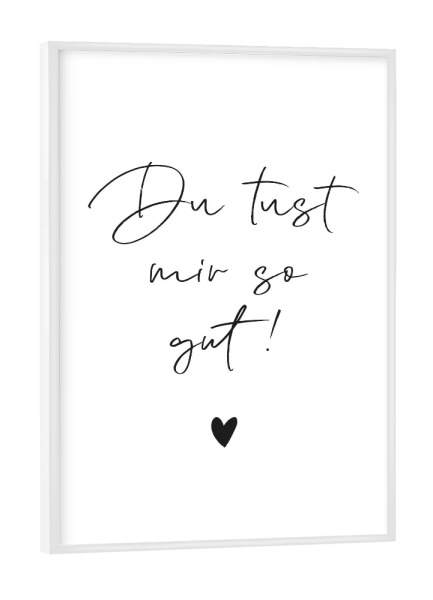 Du tust
mir so
gut!